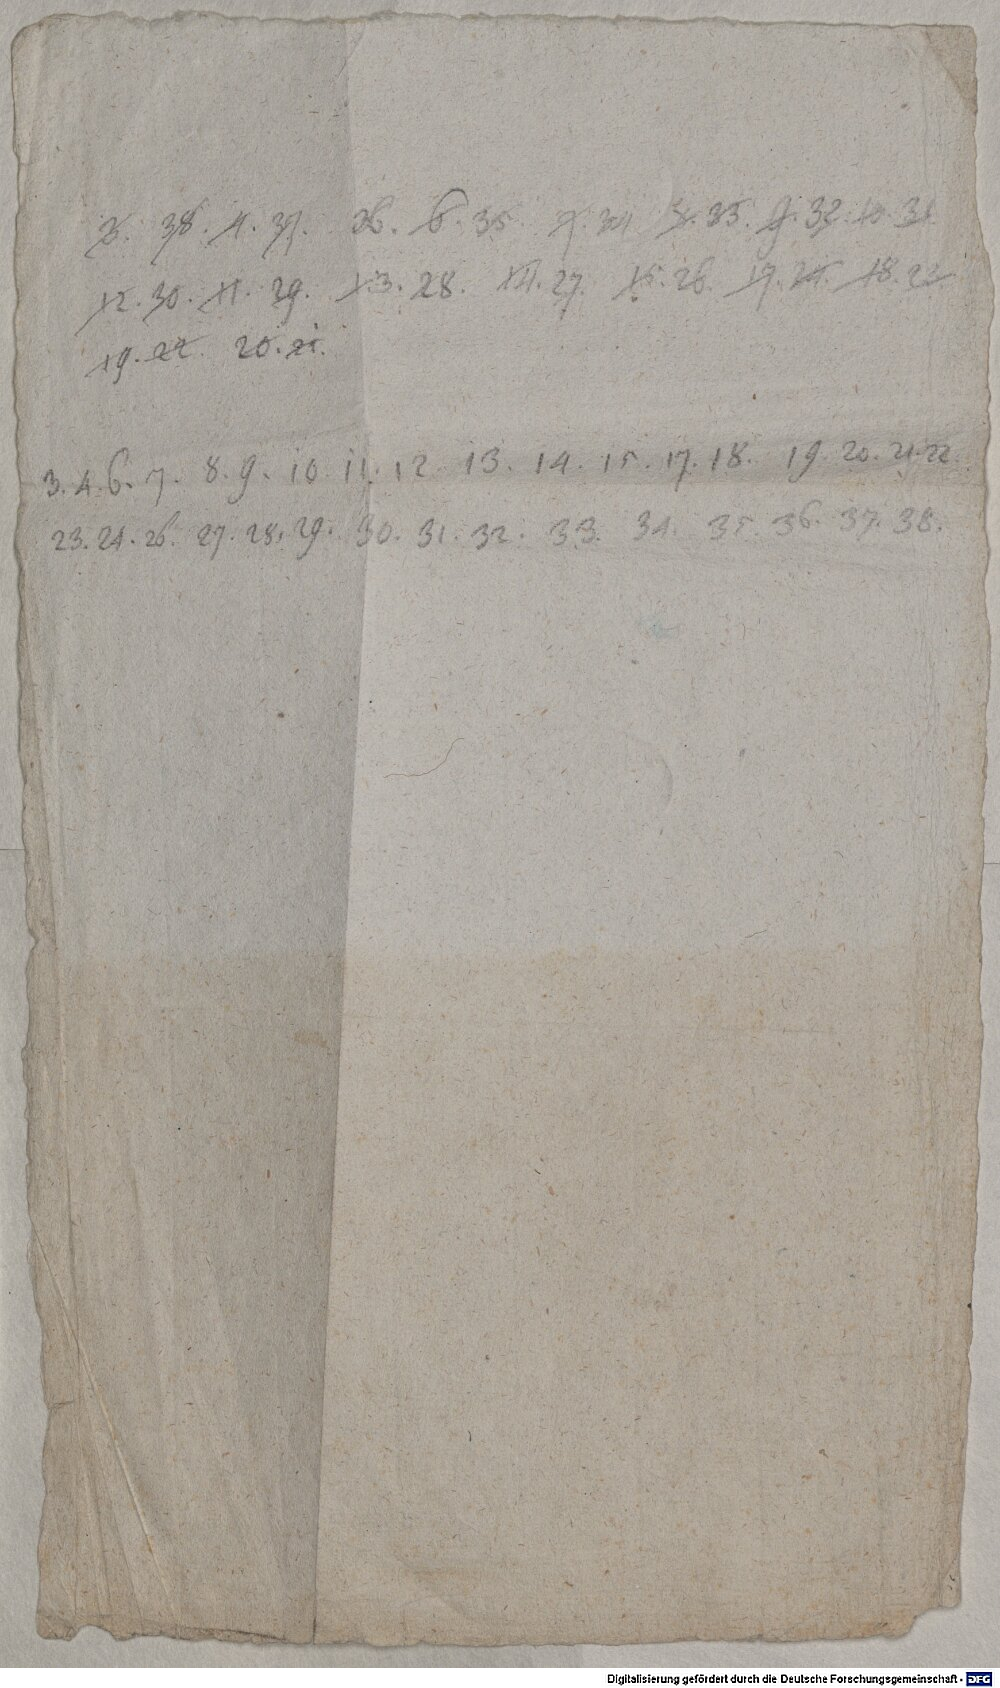 3. 38. 4. 37. 36. 6. 35. 7. 34. 8. 33. 9. 32. 10. 31.
12. 30. 11. 29. 13. 28. 14. 27. 15. 26. 17. 24. 18. 23
19. 22. 20. 21.
3. 4. 6. 7. 8. 9. 10. 11. 12. 13. 14. 15. 17. 18. 19. 20. 21. 22.
23. 24. 26. 27. 28. 29. 30. 31. 32. 33. 34. 35. 36. 37. 38.
Digitalisierung gefördert durch die Deutsche Forschungsgemeinschaft - DFG